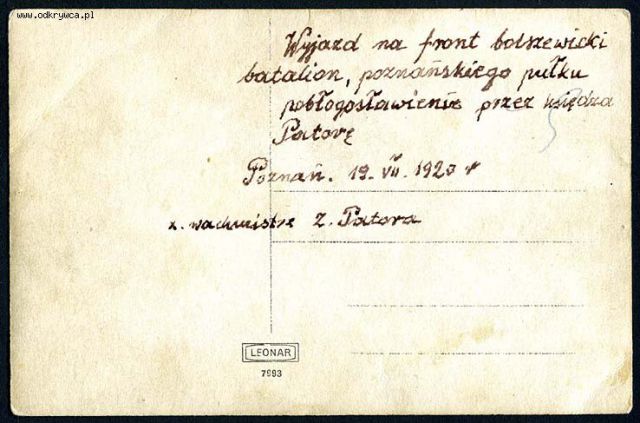 www.odkrywca.pl
Wyjazd na front bolszewicki
batalion, poznańskiego pułku
pobłogosławienie przez księdza
Patorę
Poznań. 19. VII. 1920 r
x. wachmistrz Z. Patora
LEONAR
7993